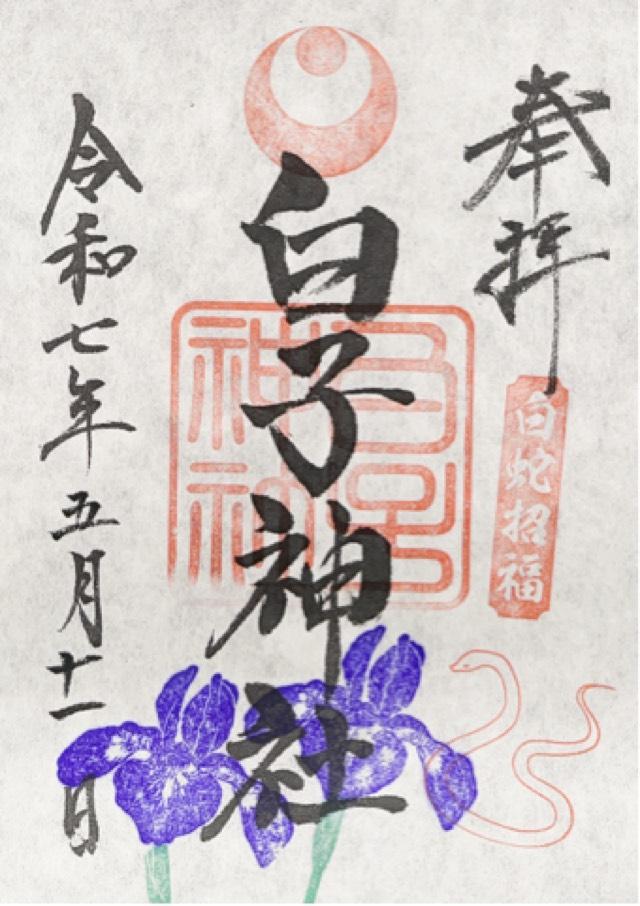 奉拝
白蛇招福
白子神社
令和七年五月十一日